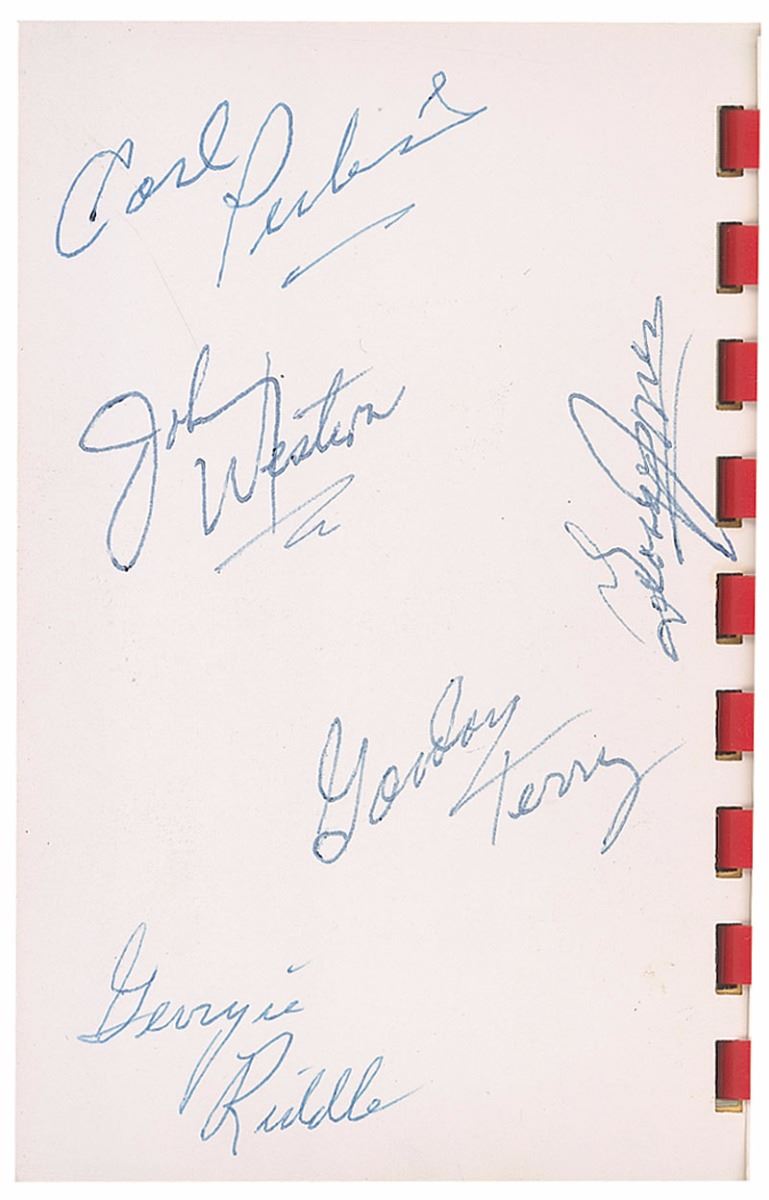 Carl
Perkins
John
Weston
George Jones
Gordon
Terry
Georgie
Riddle